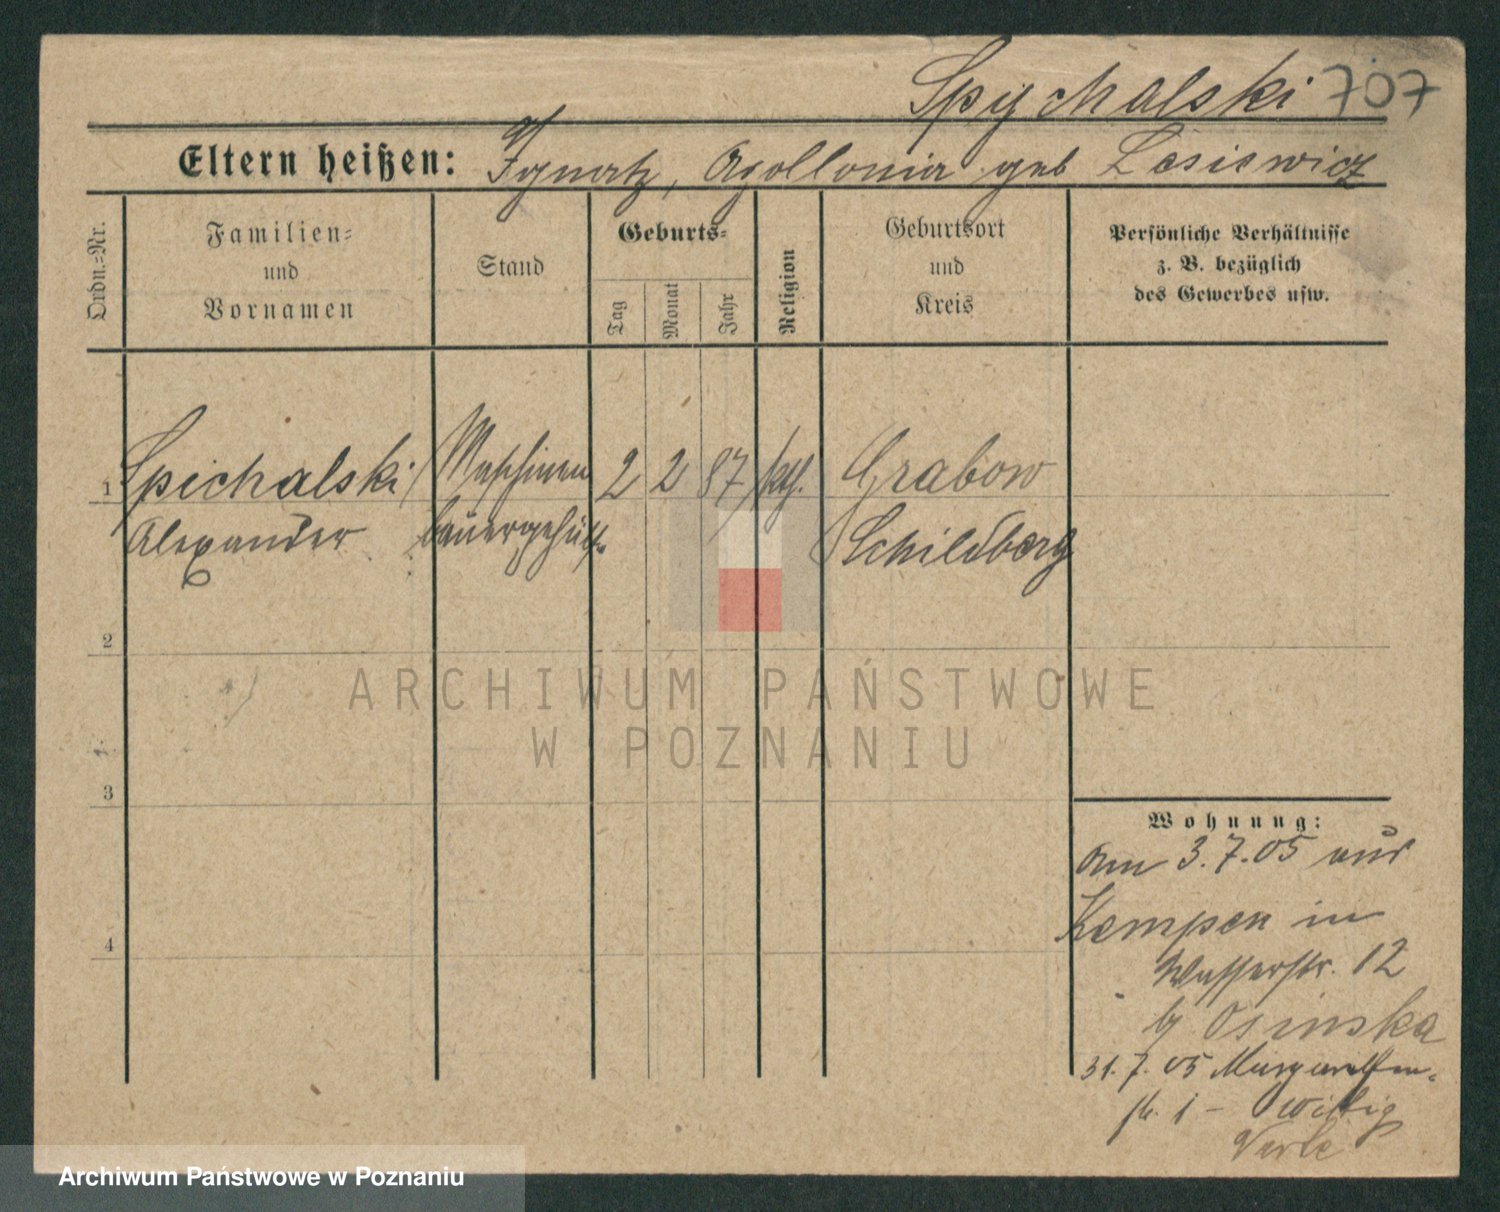 Spychalski 707
Eltern heißen: Ignatz, Apollonia geb Lesiewicz
Ordn.-Nr.
Familien-
und
Vornamen
Stand
Geburts-
Tag
Monat
Jahr
Religion
Geburtsort
und
Kreis
Persönliche Verhältnisse
z. B. bezüglich
des Gewerbes usw.
1 Spichalski Maschinen 2 2 87 kth. Grabow
Alexander bauergehülfe Schildberg
2
3
4
Wohnung:
Am 3.7.05 aus
Kempen in
Wasserstr. 12
b/ Osinska
31.7.05 Margarethen-
str. 1 - Wittig
ARCHIWUM PAŃSTWOWE
W POZNANIU
Archiwum Państwowe w Poznaniu